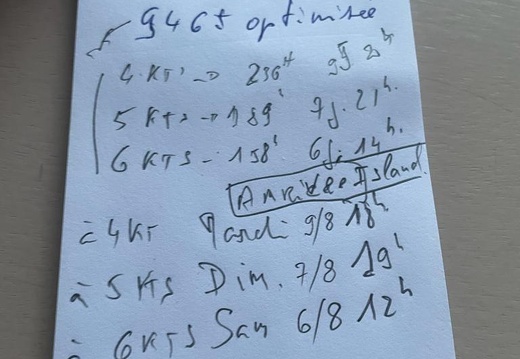 946 optimisee
4 KTS → 236ʰ 9j 20ʰ
5 KTS → 189ʰ 7j. 21ʰ.
6 KTS - 158ʰ 6j. 14ʰ.
Island
à 4 KT Mardi 9/8 18ʰ
à 5 KTS Dim. 7/8 19ʰ
à 6 KTS Sam 6/8 12ʰ